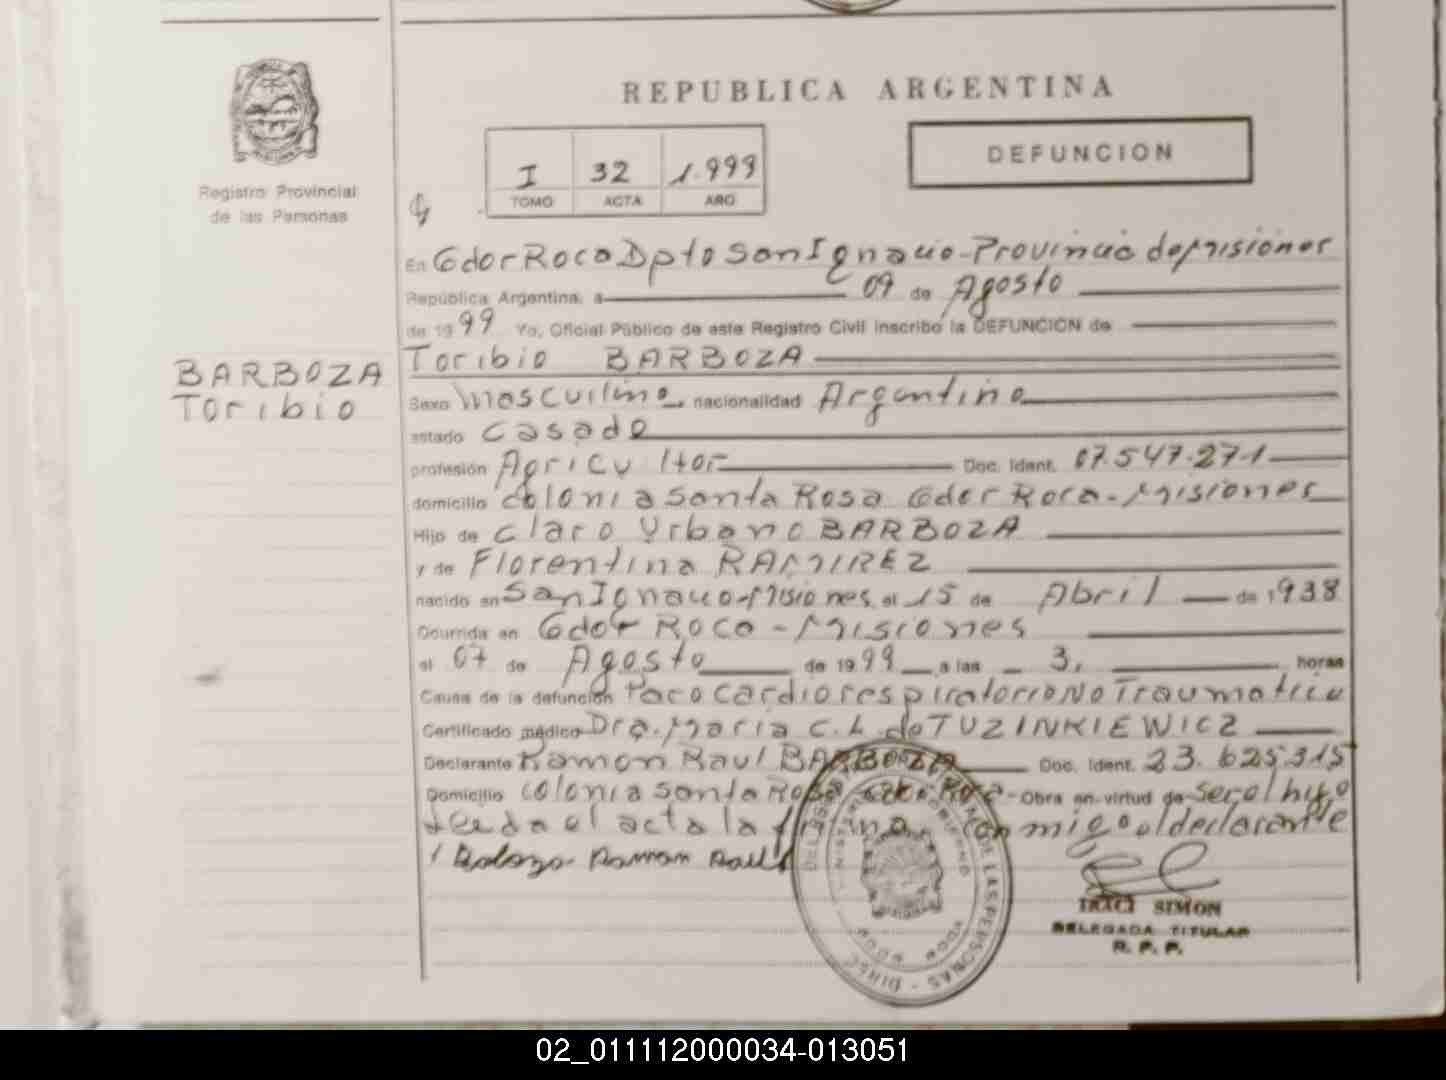 REPUBLICA ARGENTINA
DEFUNCION
I 32 1.999
TOMO ACTA AÑO
Registro Provincial
de las Personas
En Gdor Roca Dpto San Ignacio - Provincia de Misiones
República Argentina, a 09 de Agosto
de 1999 Yo, Oficial Público de este Registro Civil inscribo la DEFUNCION de
BARBOZA
Toribio
Toribio BARBOZA
Sexo Masculino, nacionalidad Argentino
estado Casado
profesión Agricultor Doc. Ident. 07.547.271
domicilio Colonia Santa Rosa Gdor Roca - Misiones
Hijo de Claro Urbano BARBOZA
y de Florentina RAMIREZ
nacido en San Ignacio - Misiones, el 15 de Abril de 1938
Ocurrida en Gdor Roca - Misiones
el 07 de Agosto de 1999 a las 3, horas
Causa de la defunción Paro Cardiorespiratorio No Traumatico
Certificado médico Dra. Maria C. L. de TUZINKIEWICZ
Declarante Ramon Raul BARBOZA Doc. Ident. 23.625.315
Domicilio Colonia Santa Rosa Gdor Roca - Obra en virtud de ser el hijo
Leeda el acta la firma con migo el declarante
Ramon Raul
IRACI SIMON
DELEGADA TITULAR
R. P. P.
DE LAS PERSONAS
02_011112000034-013051